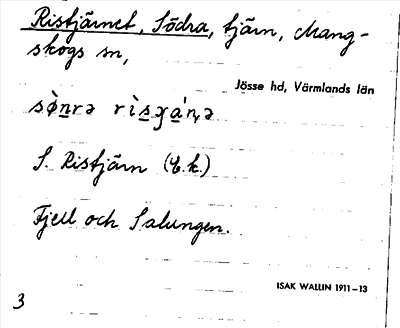 Ristjärnet, Södra, tjärn, Mang-
skogs sn,
Jösse hd, Värmlands län
S. Ristjärn (E.k.)
Fjell och Salungen.
ISAK WALLIN 1911–13
3